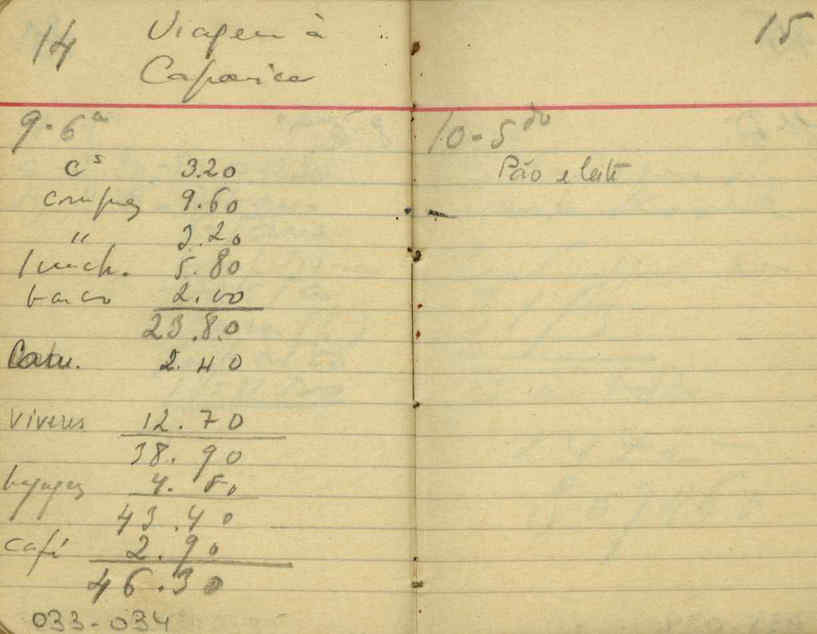 14
Viagem à
Caparica
9-6ª
cˢ 3.20
compras 9.60
" 3.20
lunch. 5.80
barco 2.00
23.80
Cam. 2.40
Viveres 12.70
38.90
bagagem 4.50
43.40
café 2.90
46.30
033-034
15
10-Sᵈᵒ
Pão e leite